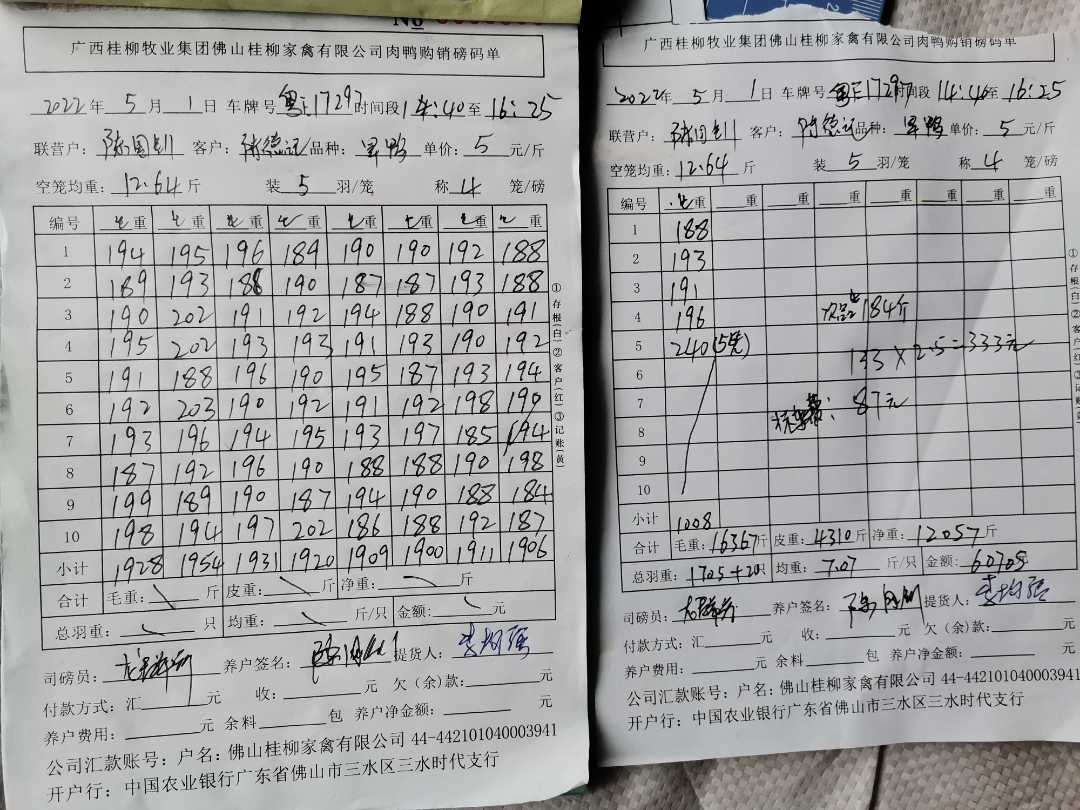 No
广西桂柳牧业集团佛山桂柳家禽有限公司肉鸭购销磅码单
2022年 5 月 1 日 车牌号 粤E17297 时间段 14:40 至 16:25
联营户: 陈国钊 客户: 陈德记 品种: 旱鸭 单价: 5 元/斤
空笼均重: 12.64 斤 装 5 羽/笼 称 4 笼/磅
编号 毛重 毛重 毛重 毛重 毛重 毛重 毛重 毛重
1 194 195 196 189 190 190 192 188
2 189 193 188 190 187 187 193 188
3 190 202 191 192 194 188 190 191
4 195 202 193 193 191 193 190 192
5 191 188 196 190 195 187 193 194
6 192 203 190 192 191 192 198 190
7 193 196 194 195 193 197 185 194
8 187 192 196 190 188 188 190 198
9 199 189 190 187 194 190 188 184
10 198 194 197 202 186 188 192 187
小计 1928 1954 1931 1920 1909 1900 1911 1906
合计 毛重: 斤 皮重: 斤 净重: 斤
总羽重: 只 均重: 斤/只 金额: 元
司磅员: 养户签名: 提货人: 李均强
付款方式: 汇 元 收: 元 欠(余)款: 元
养户费用: 元 余料 包 养户净金额: 元
公司汇款账号: 户名: 佛山桂柳家禽有限公司 44-442101040003941
开户行: 中国农业银行广东省佛山市三水区三水时代支行
①存根(白)②客户(红)③记账(黄)
广西桂柳牧业集团佛山桂柳家禽有限公司肉鸭购销磅码单
2022年 5 月 1 日 车牌号 粤E17297 时间段 14:40 至 16:25
联营户: 陈国钊 客户: 陈德记 品种: 旱鸭 单价: 5 元/斤
空笼均重: 12.64 斤 装 5 羽/笼 称 4 笼/磅
编号 毛重 重 重 重 重 重 重 重
1 188
2 193
3 191
4 196 次品 184斤
5 240(5笼) 133×2.5=333元
6
7 87元
8
9
10
小计 1008
合计 毛重: 16367斤 皮重: 4310斤 净重: 12057斤
总羽重: 1705+20只 均重: 7.07 斤/只 金额: 60705
司磅员: 养户签名: 提货人: 李均强
付款方式: 汇 元 收: 元 欠(余)款: 元
养户费用: 元 余料 包 养户净金额: 元
公司汇款账号: 户名: 佛山桂柳家禽有限公司 44-442101040003941
开户行: 中国农业银行广东省佛山市三水区三水时代支行
①存根(白)②客户(红)③记账